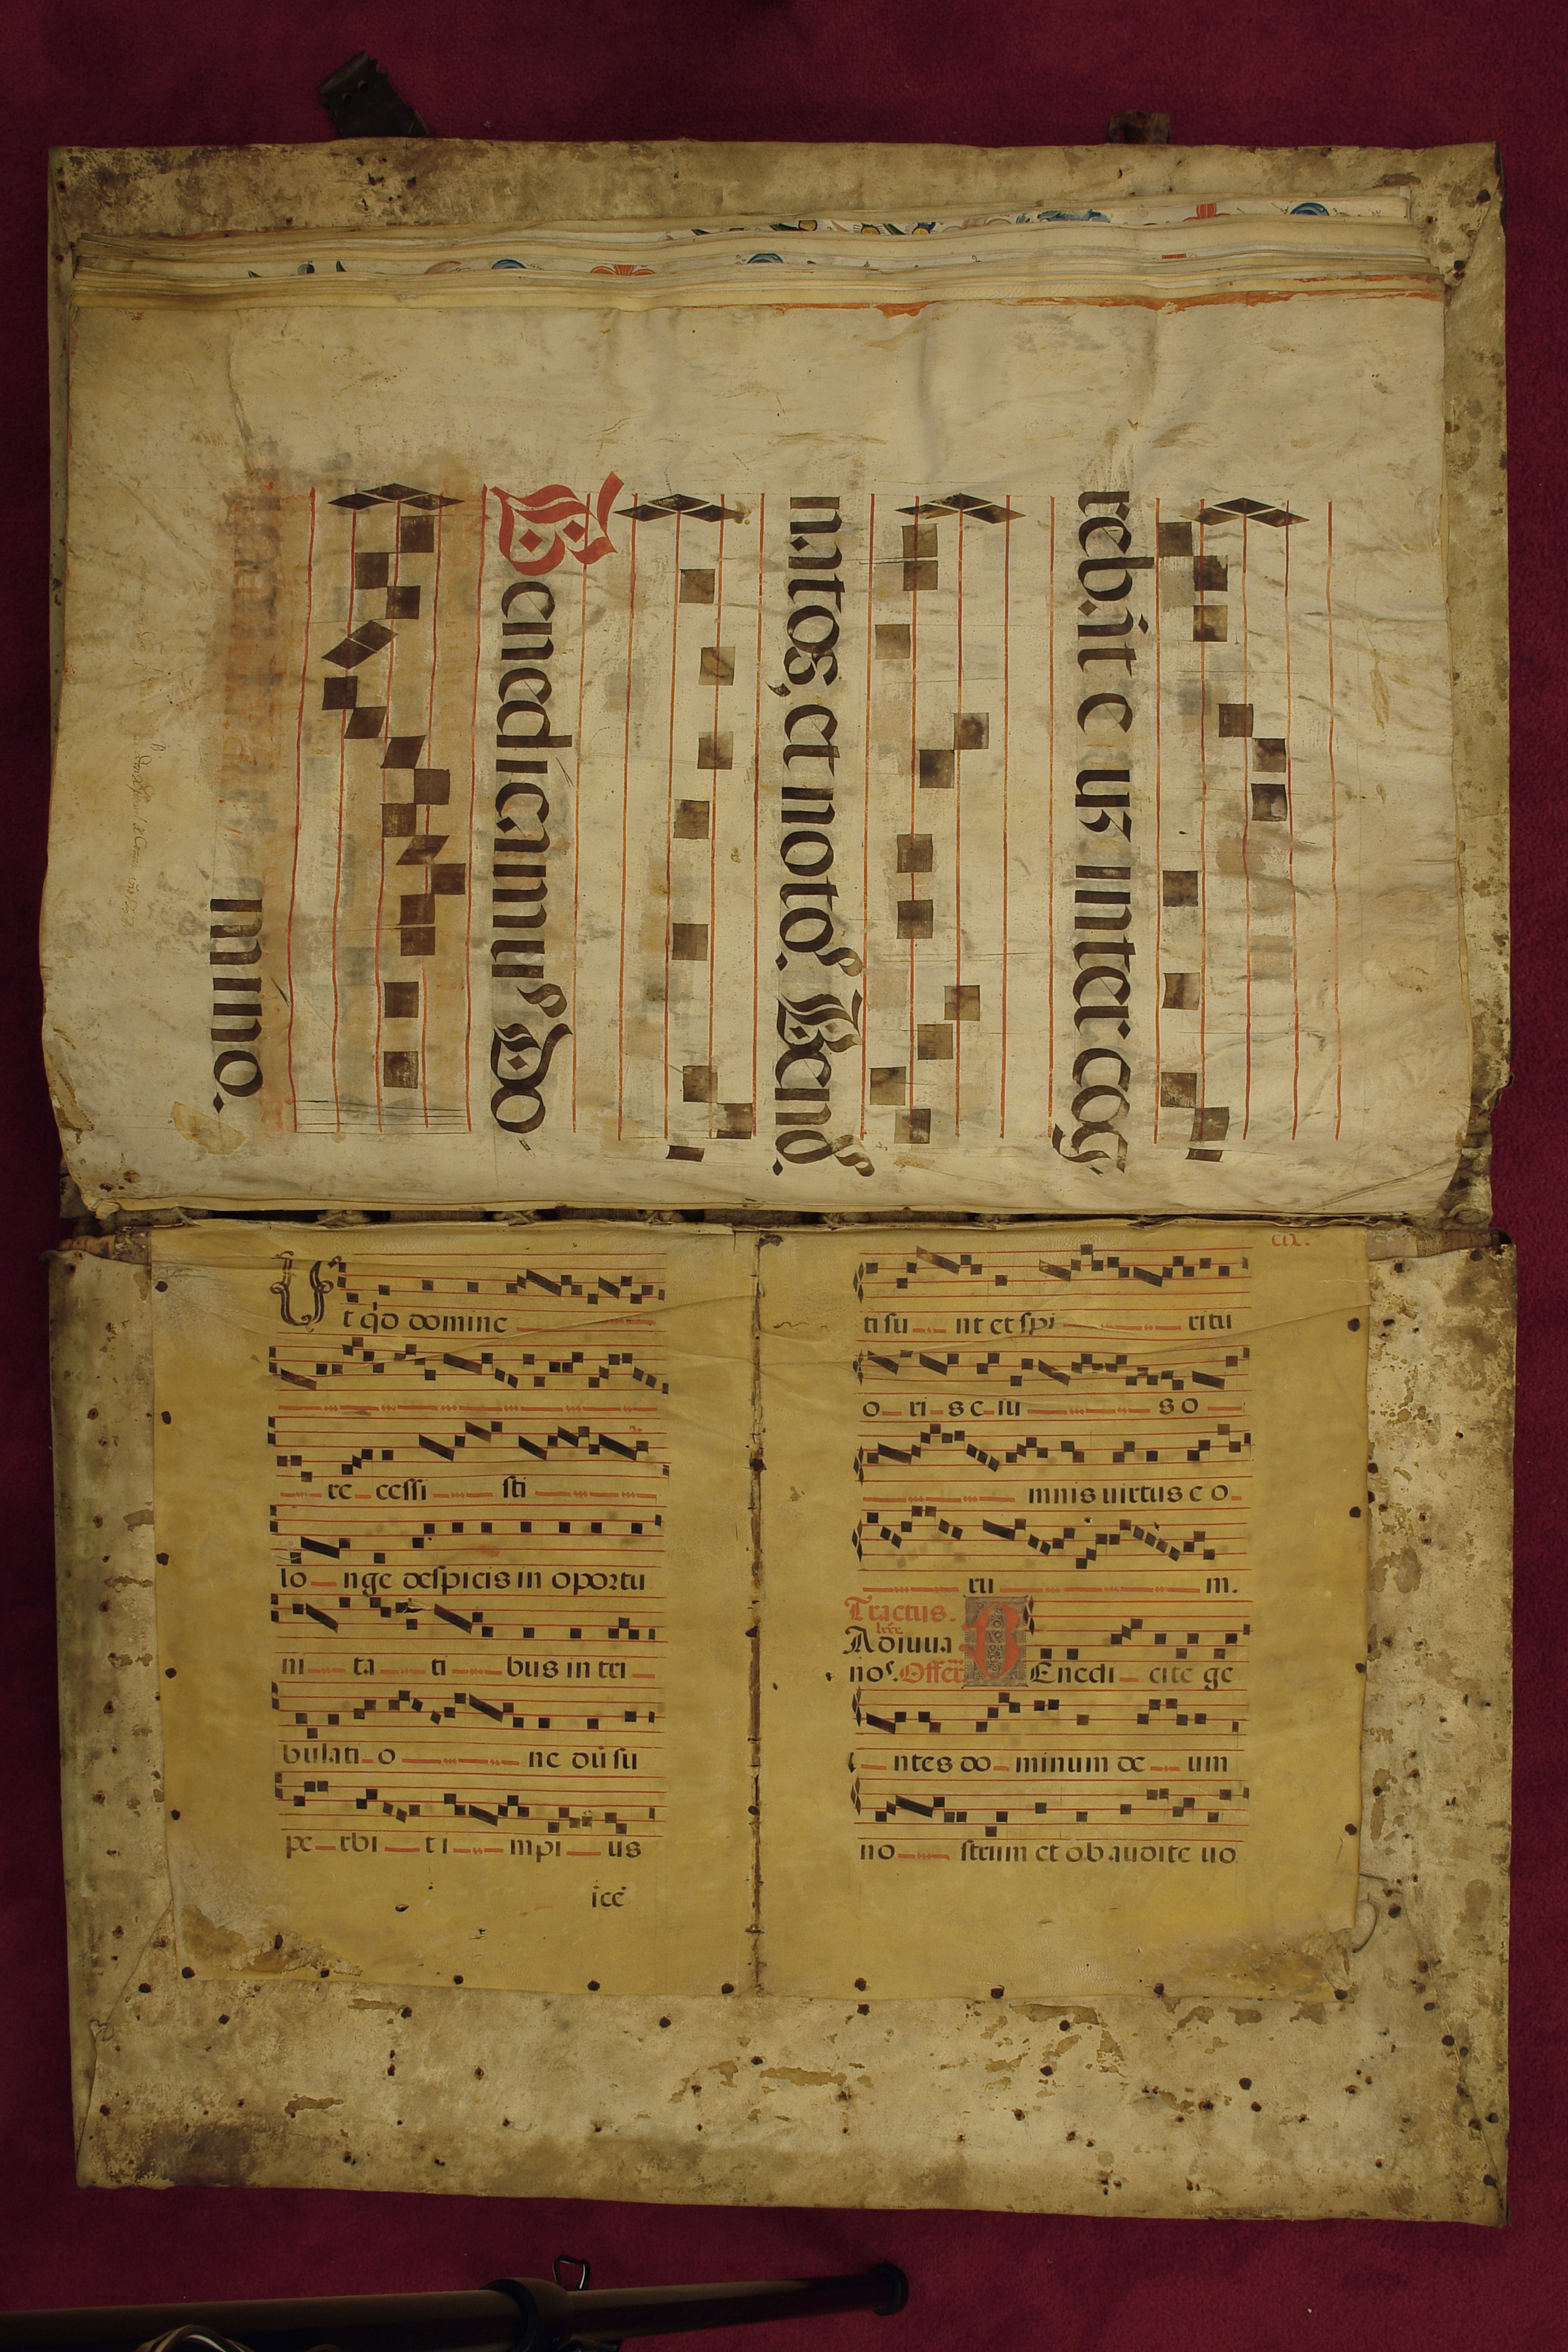 rebat e us inter cog
natos, et notos. Bened.
Benedicamus Do
mino.
Ut qd domine
re cessi sti
lo nge despicis in oportu
ni ta ti bus in tri
bulati o ne dũ su
pe rbi t i mpi us
ice
cix.
ti su nt et spi ritu
o ri s e iu s o
mnis uirtus e o
ru m.
Tractus.
Adiuua
nos. Offer BEnedi cite ge
ntes do minum de um
no strum et obaudite uo